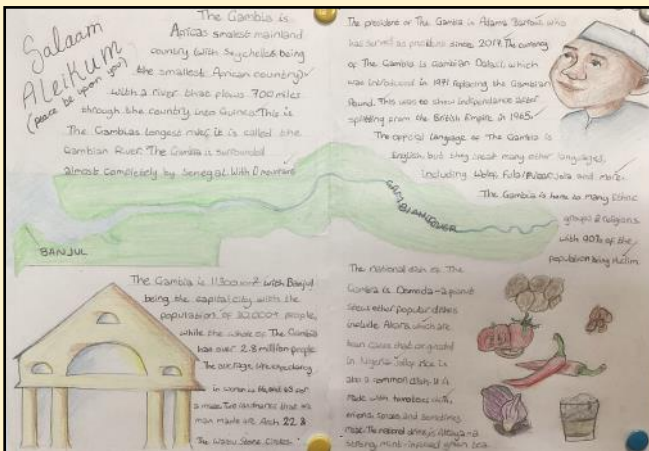 Salaam
Aleikum
(peace be upon you)
The Gambia is
Africas smallest mainland
country (with Seychelles being
the smallest African country)
with a river that flows 700 miles
through the country into Guinea. This is
The Gambias longest river, it is called the
Gambian River. The Gambia is surrounded
almost completely by Senegal. With 0 mountains
The president of The Gambia is Adama Barrow who
has served as president since 2017. The currency
of The Gambia is Gambian Dalasi, which
was introduced in 1971 replacing the Gambian
Pound. This was to show independence after
splitting from the British Empire in 1965.
The official language of The Gambia is
English, but they speak many other languages,
including Wolof, Fula/Pulaar, Jola and more.
The Gambia is home to many Ethnic
groups & religions
with 90% of the
population being Muslim
GAMBIAN RIVER
BANJUL
The Gambia is 11300 km2 with Banjul
being the capital city with the
population of 30,000+ people,
while the whole of The Gambia
has over 2.8 million people
The average life expectancy
in women is and 65 for
a male. Two landmarks that are
man made are Arch 22 &
The Wassu Stone Circles.
The national dish of The
Gambia is Domoda - a peanut
stew other popular dishes
include Akara, which are
bean cakes that originated
in Nigeria. Jollof Rice is
also a common dish. It is
made with tomatoes,
onions, spices and sometimes
meat. The national drink is Attaya - a
strong mint-infused green tea.